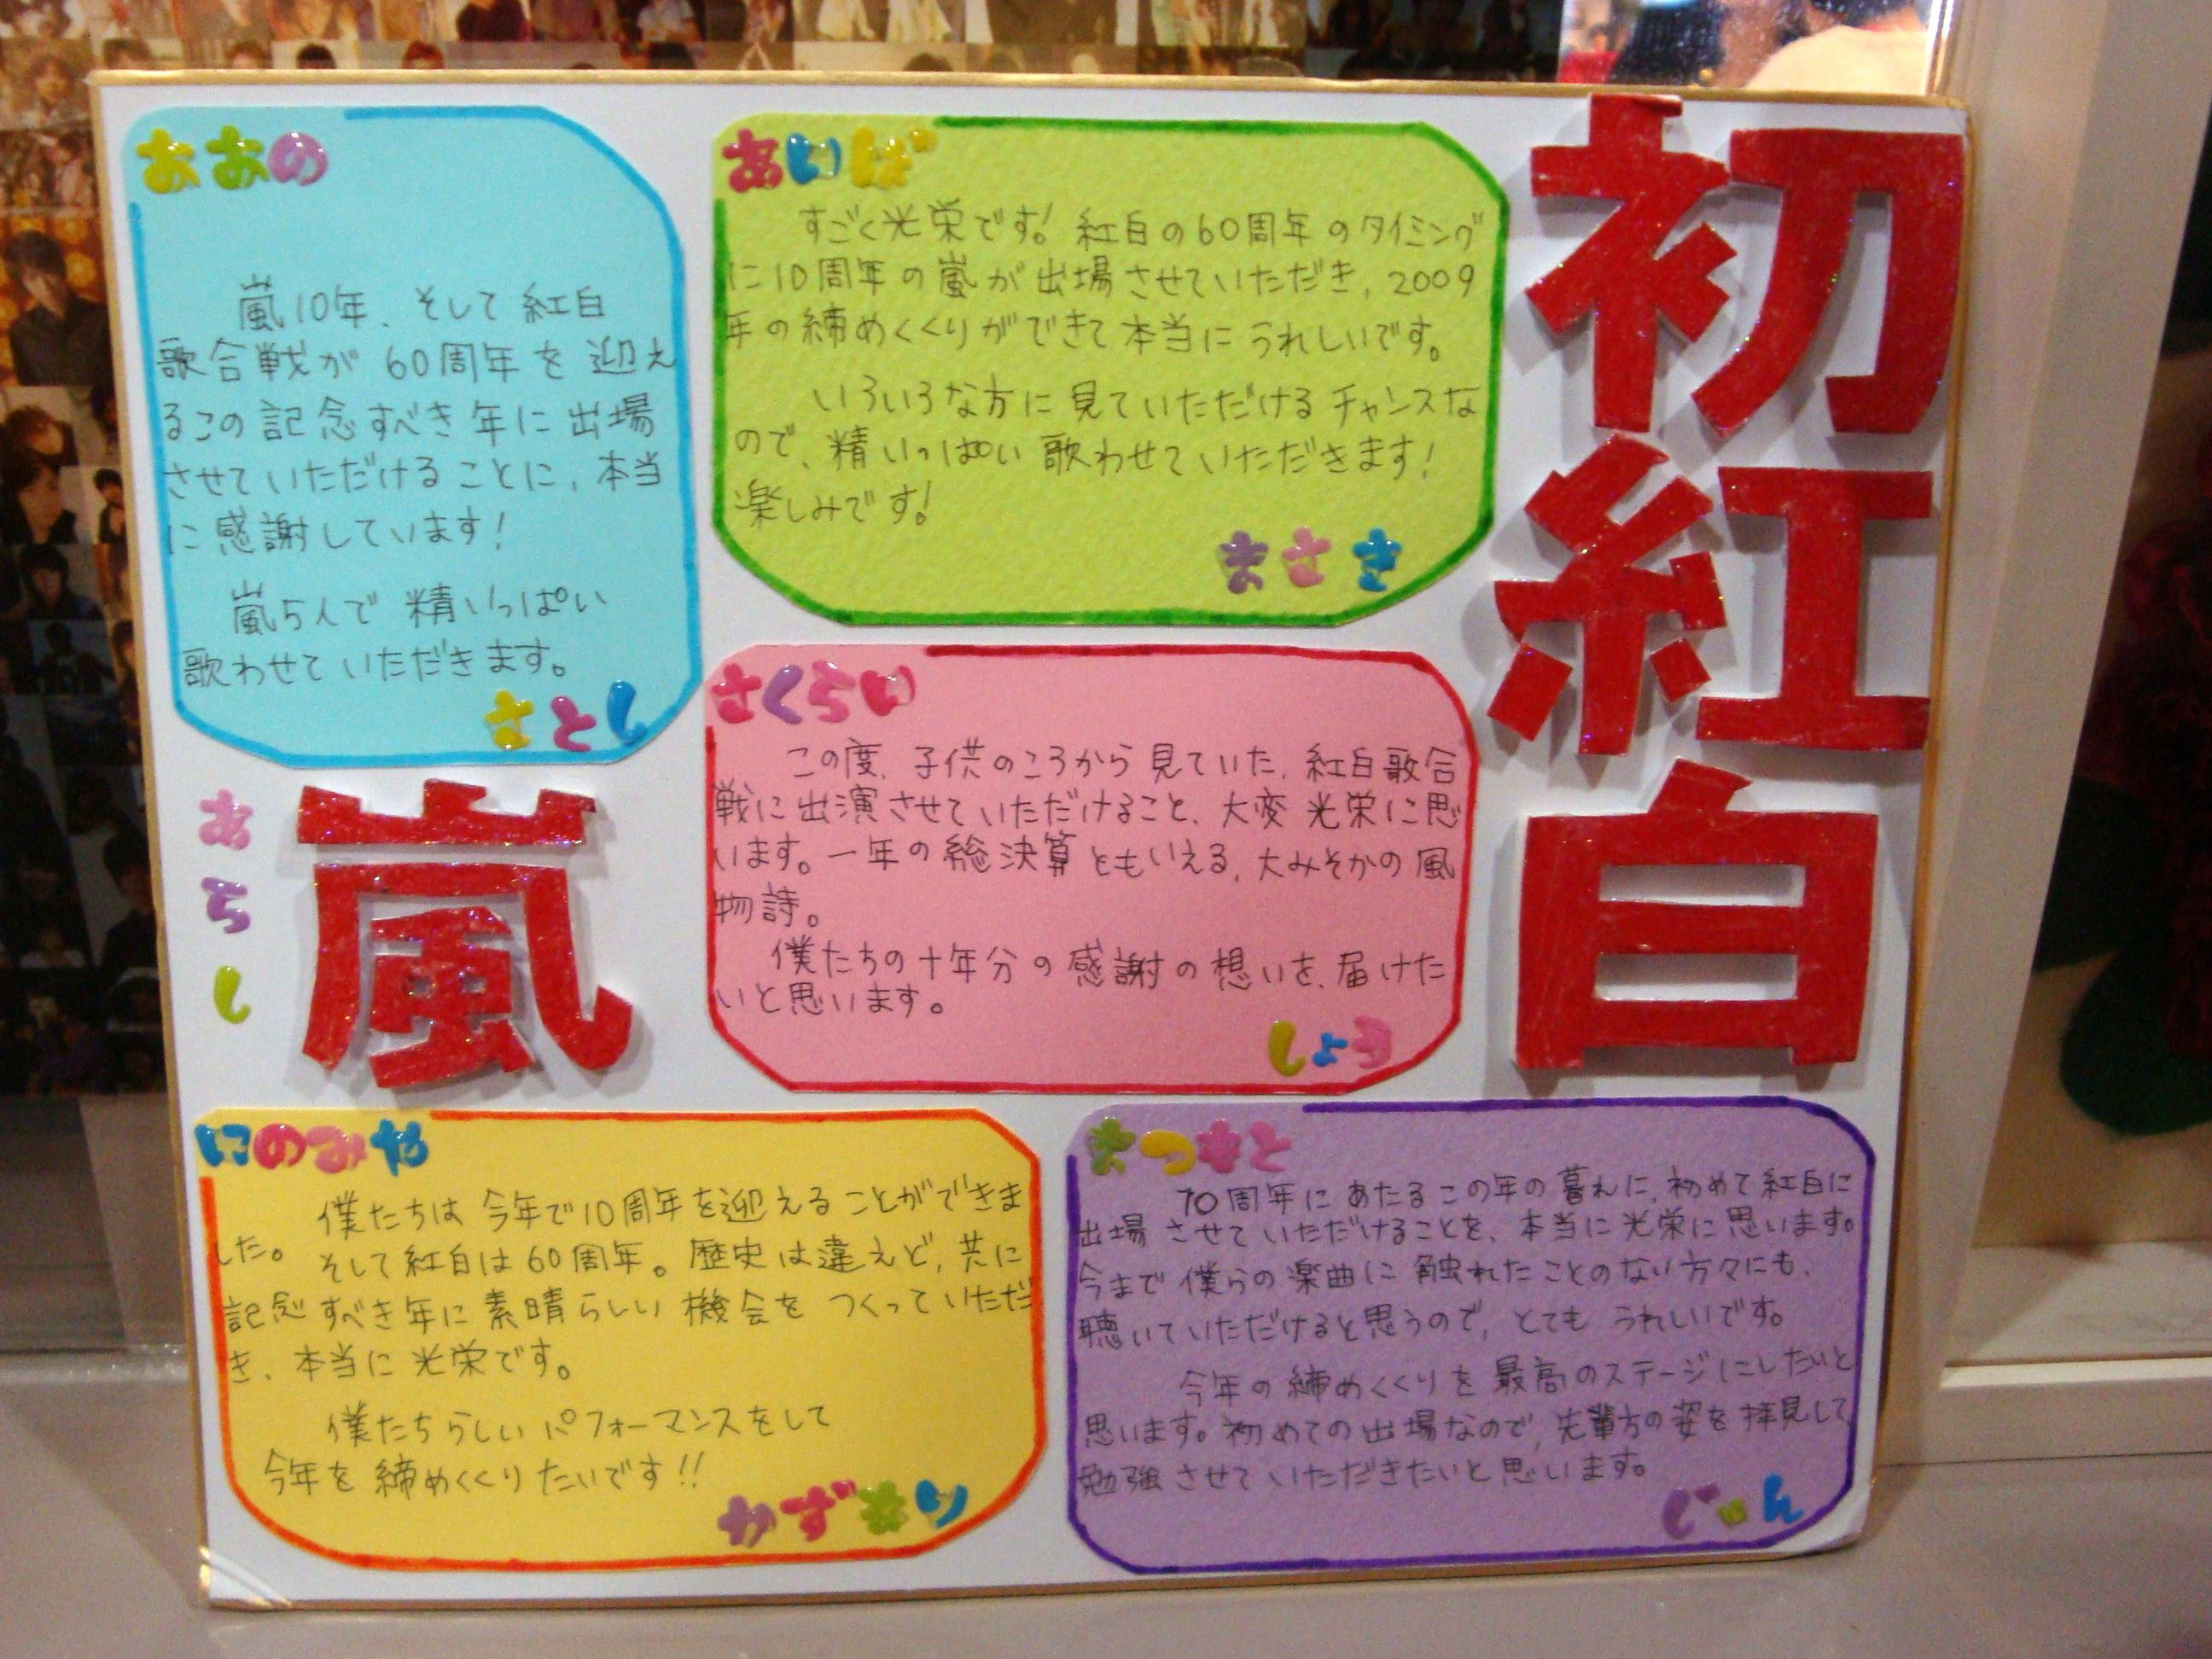 初紅白
おおの
嵐10年、そして紅白
歌合戦が60周年を迎え
るこの記念すべき年に出場
させていただけることに、本当
に感謝しています!
嵐5人で精いっぱい
歌わせていただきます。
さとし
あいば
すごく光栄です!紅白の60周年のタイミング
に10周年の嵐が出場させていただき、2009
年の締めくくりができて本当にうれしいです。
いろいろな方に見ていただけるチャンスな
ので、精いっぱい歌わせていただきます!
楽しみです!
まさき
さくらい
この度、子供のころから見ていた、紅白歌合
戦に出演させていただけること、大変光栄に思
います。一年の総決算ともいえる、大みそかの風
物詩。
僕たちの十年分の感謝の想いを、届けた
いと思います。
しょう
あらし
嵐
にのみや
僕たちは今年で10周年を迎えることができま
した。そして紅白は60周年。歴史は違えど、共に
記念すべき年に素晴らしい機会をつくっていただ
き、本当に光栄です。
僕たちらしいパフォーマンスをして
今年を締めくくりたいです!!
かずなり
まつもと
10周年にあたるこの年の暮れに、初めて紅白に
出場させていただけることを、本当に光栄に思います。
今まで僕らの楽曲に触れたことのない方々にも、
聴いていただけると思うので、とてもうれしいです。
今年の締めくくりを最高のステージにしたいと
思います。初めての出場なので、先輩方の姿を拝見して、
勉強させていただきたいと思います。
じゅん